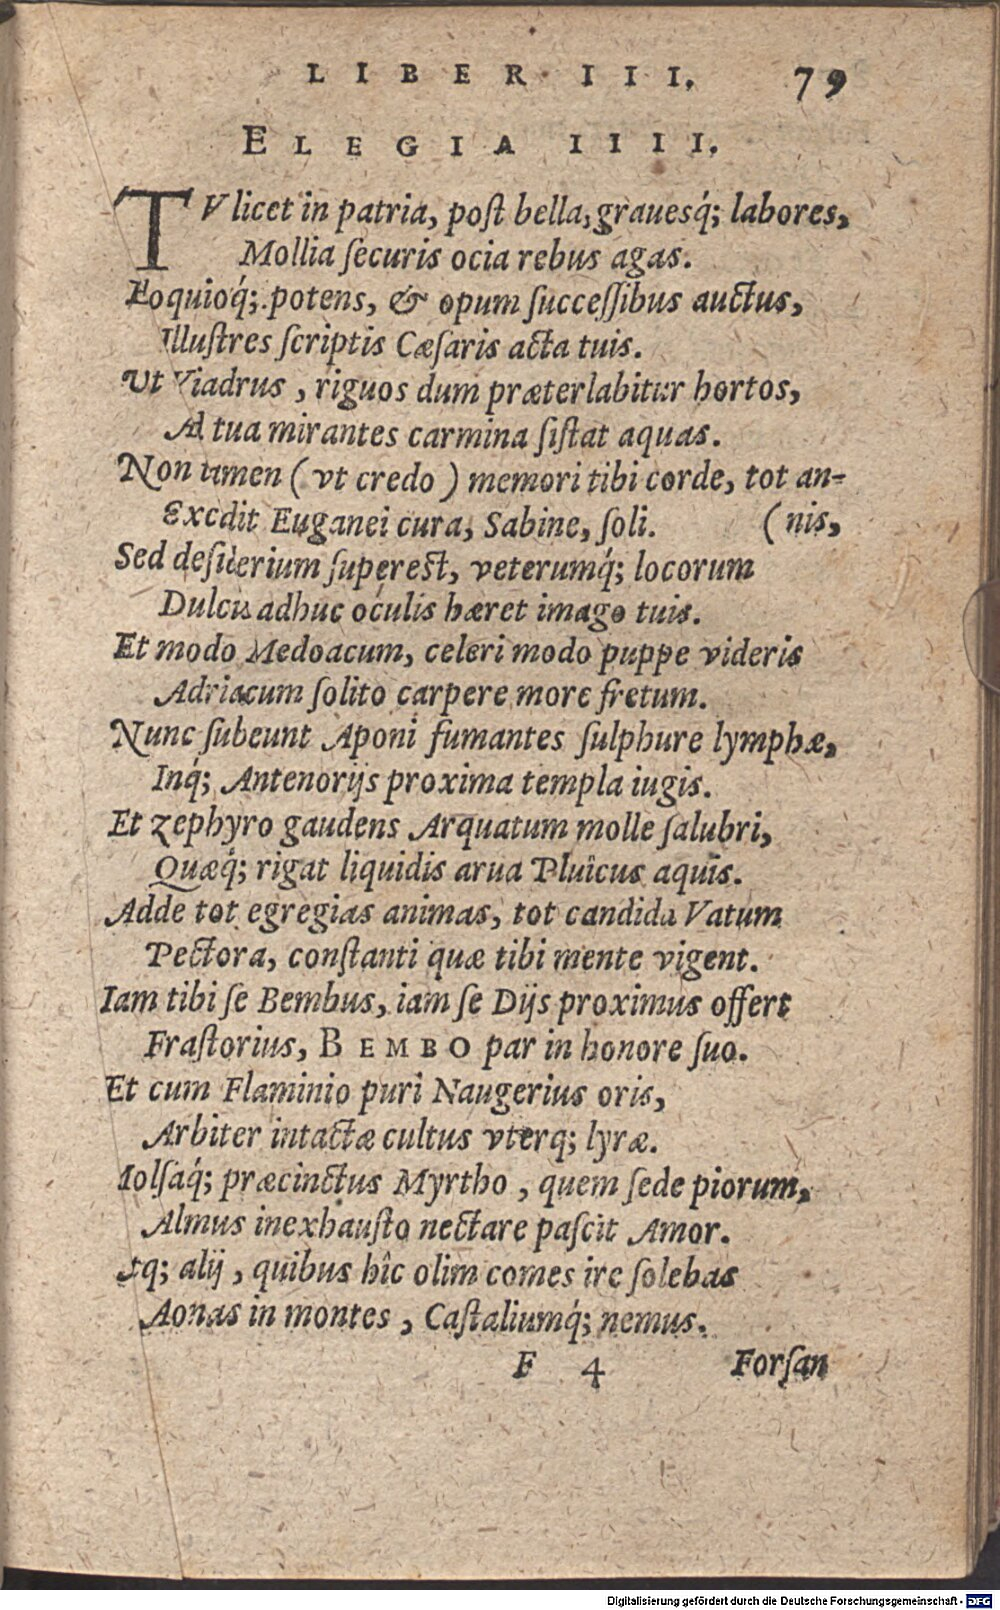 LIBER III. 79
ELEGIA IIII.
TV licet in patria, poſt bella, grauesq́; labores,
Mollia ſecuris ocia rebus agas.
Eoquioq́; potens, & opum ſucceſſibus auctus,
Illuſtres ſcriptis Cæſaris acta tuis.
Ut Viadrus, riguos dum præterlabitur hortos,
Ad tua mirantes carmina ſiſtat aquas.
Non tamen (vt credo) memori tibi corde, tot an-
Excdit Euganei cura, Sabine, ſoli. (nis,
Sed deſiderium ſupereſt, veterumq́; locorum
Dulcis adhuc oculis hæret imago tuis.
Et modo Medoacum, celeri modo puppe videris
Adriacum ſolito carpere more fretum.
Nunc ſubeunt Aponi fumantes ſulphure lymphæ,
Inq́; Antenorijs proxima templa iugis.
Et zephyro gaudens Arquatum molle ſalubri,
Quæq́; rigat liquidis arua Pluîcus aquis.
Adde tot egregias animas, tot candida Vatum
Pectora, conſtanti quæ tibi mente vigent.
Iam tibi ſe Bembus, iam ſe Dijs proximus offert
Fraſtorius, BEMBO par in honore ſuo.
Et cum Flaminio puri Naugerius oris,
Arbiter intactæ cultus vterq; lyræ.
Molſaq́; præcinctus Myrtho, quem ſede piorum,
Almus inexhauſto nectare paſcit Amor.
Atq; alij, quibus hîc olim comes ire ſolebas
Aonas in montes, Caſtaliumq́; nemus.
F 4 Forſan
Digitalisierung gefördert durch die Deutsche Forschungsgemeinschaft - DFG